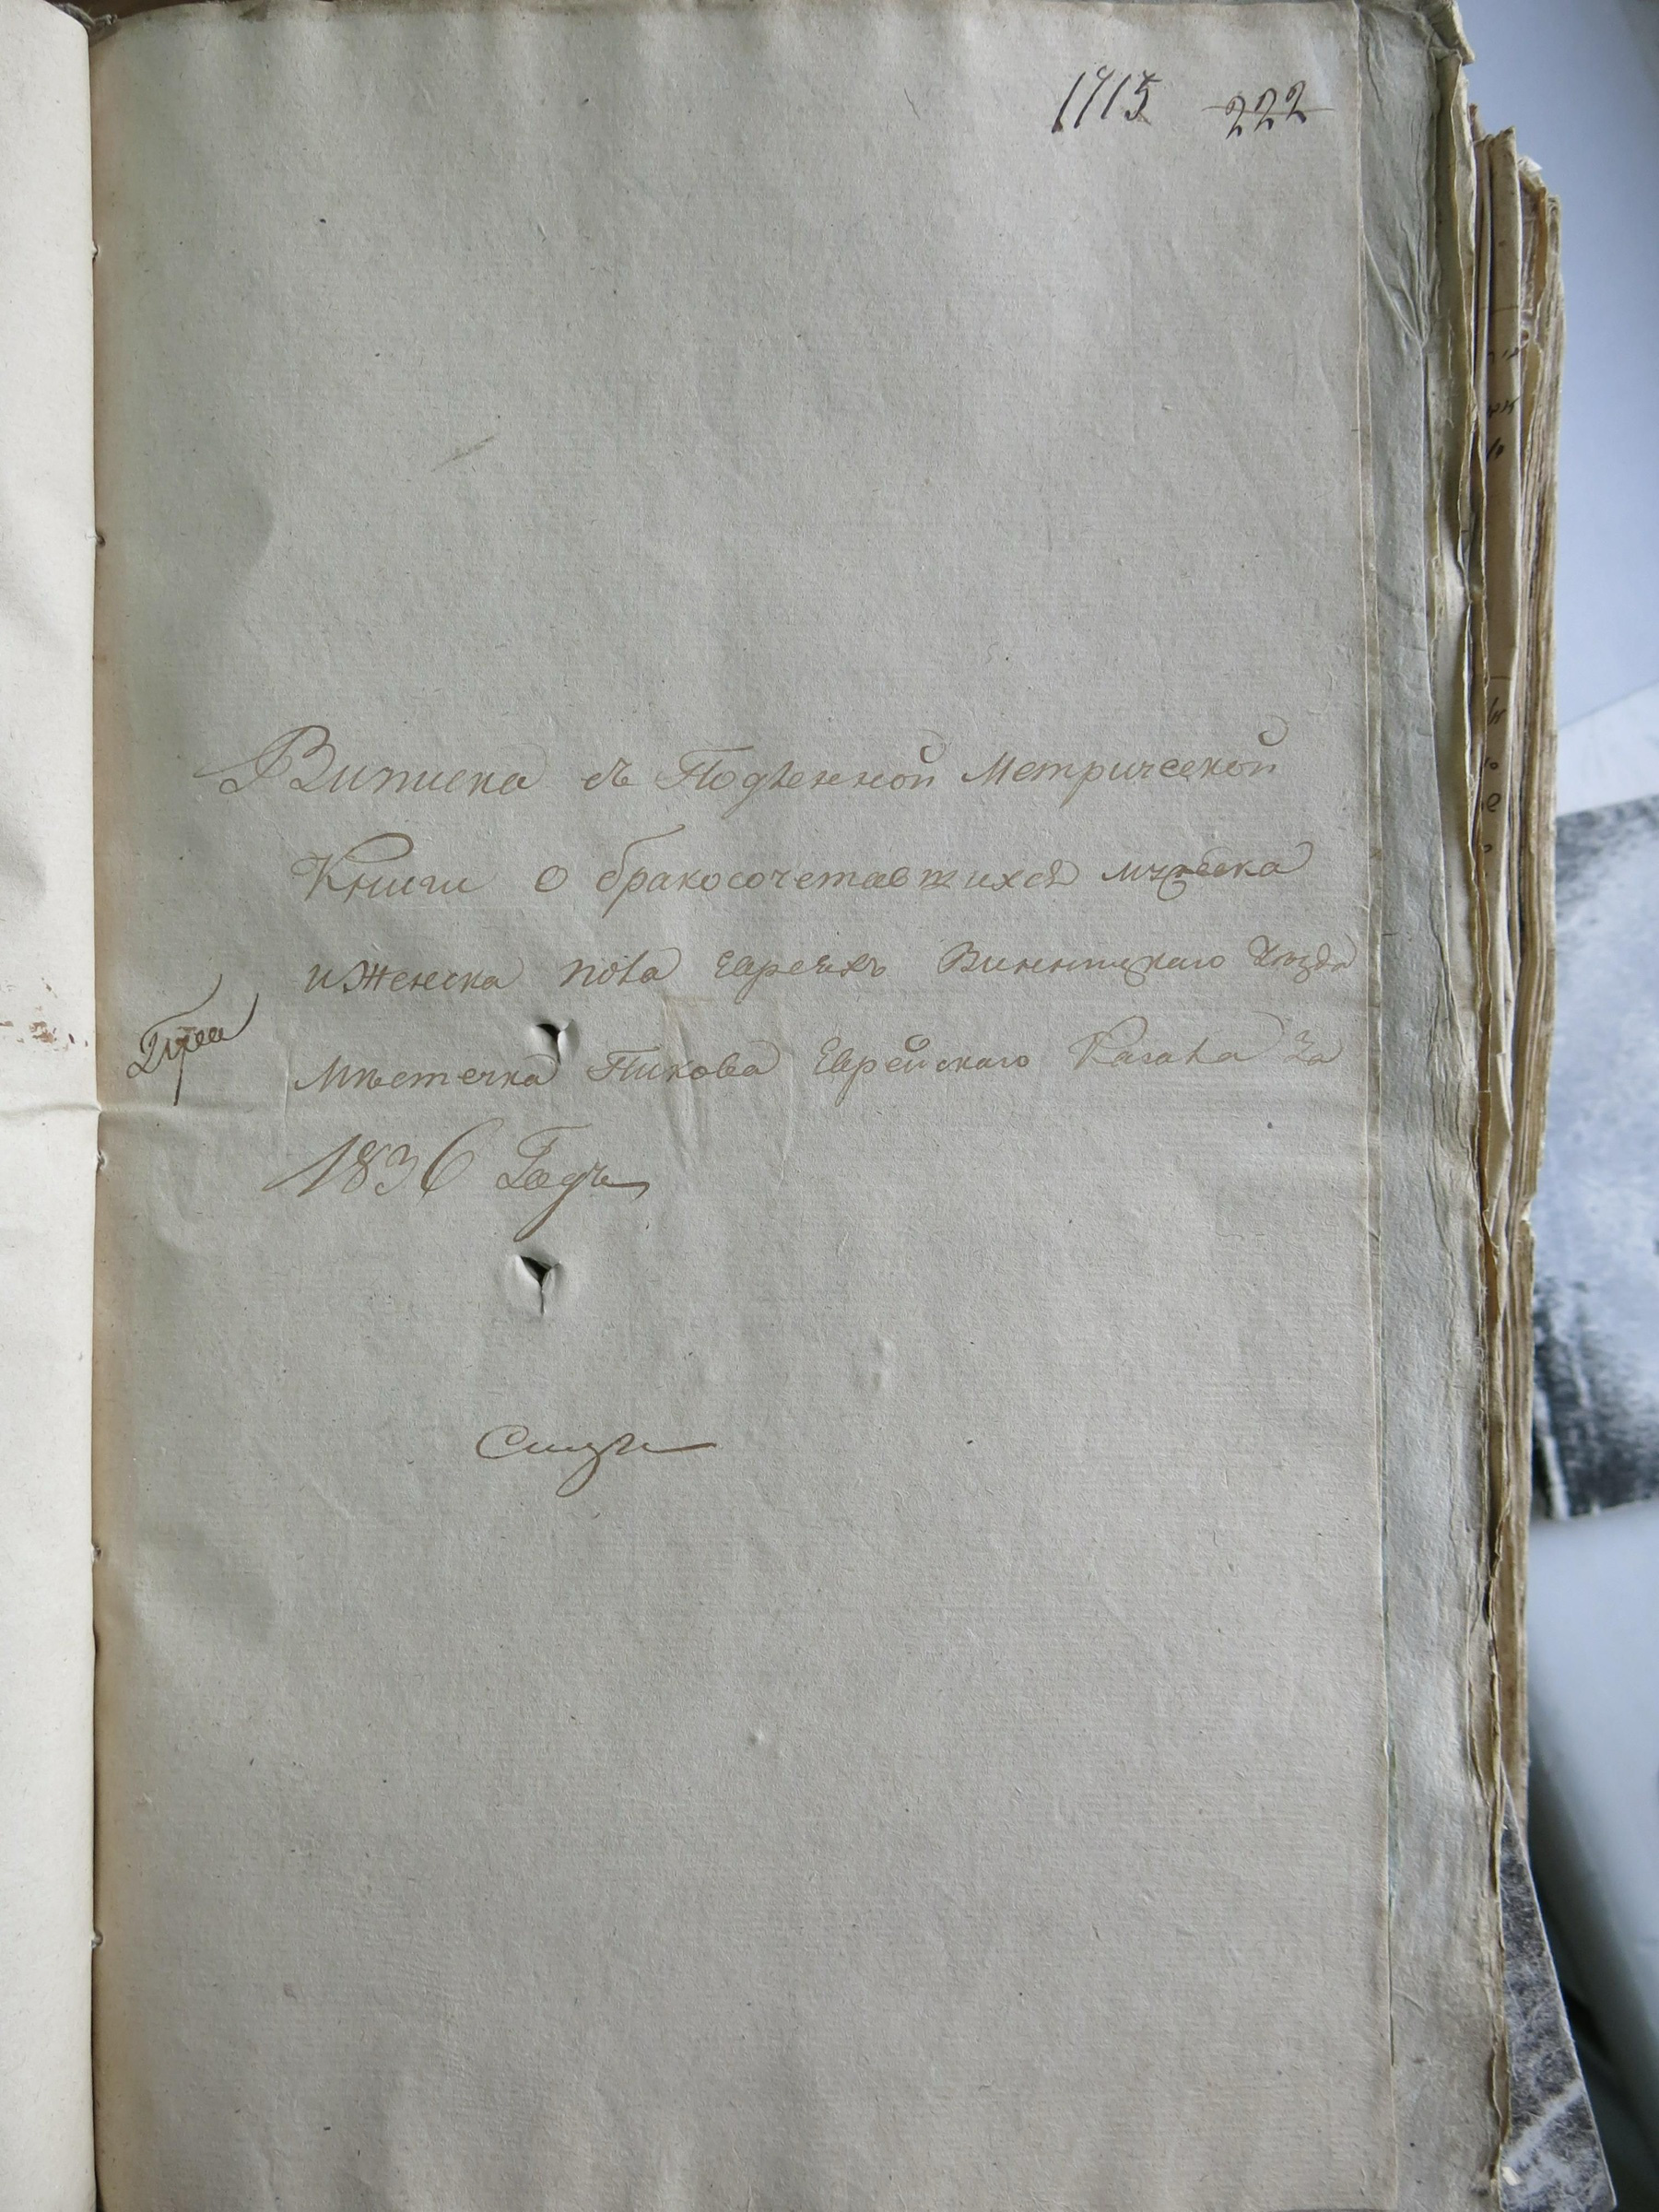 1715 222
Виписка съ Подленной Метрической
Книги о бракосочетавшихся мужеска
и Женска пола Евреехъ Винницкаго Уезда
Мѣстечка Пикова Еврейскаго Кагала За
1836 Годъ